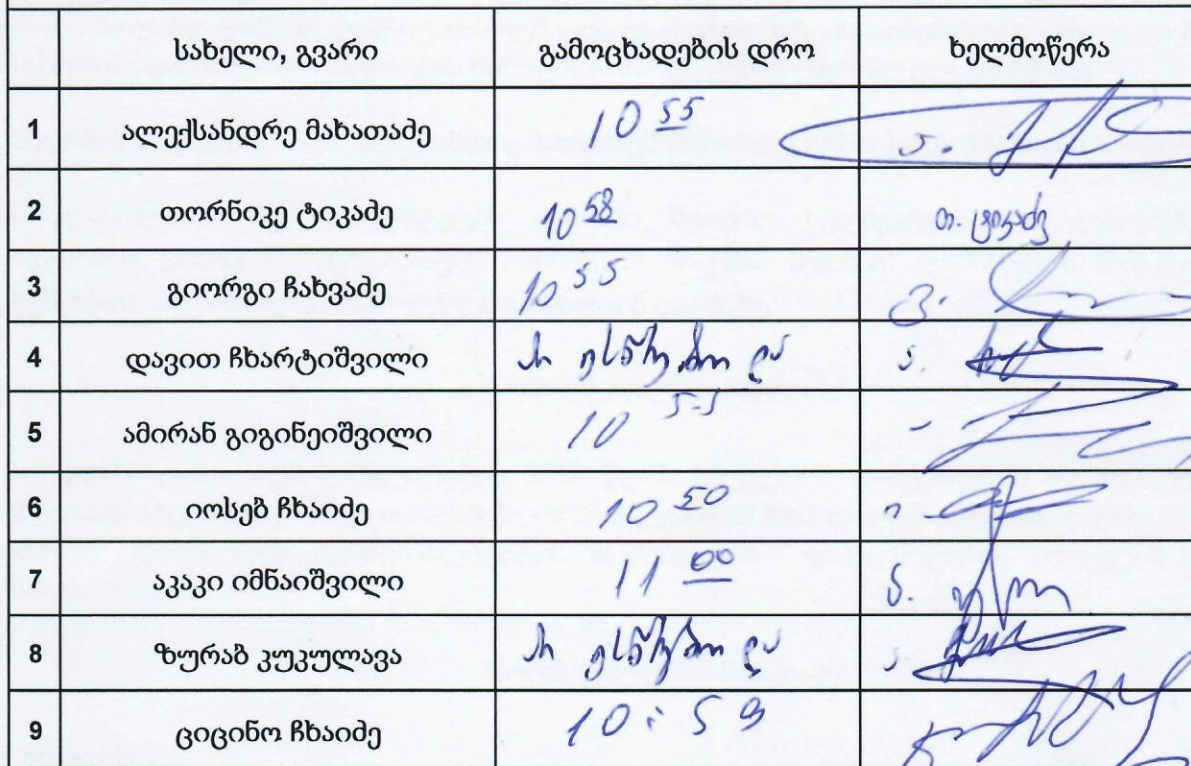 სახელი, გვარი გამოცხადების დრო ხელმოწერა
1 ალექსანდრე მახათაძე 10 55
2 თორნიკე ტიკაძე 10 58 თ. ტიკაძე
3 გიორგი ჩახვაძე 10 55
4 დავით ჩხარტიშვილი არ ესწრებოდა
5 ამირან გიგინეიშვილი 10 55
6 იოსებ ჩხაიძე 10 50
7 აკაკი იმნაიშვილი 11 00
8 ზურაბ კუკულავა არ ესწრებოდა
9 ციცინო ჩხაიძე 10:59